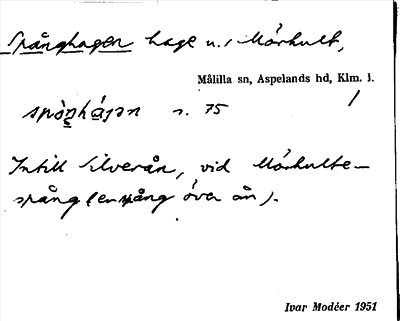 Spånghagen hage u. Mörhult,
Målilla sn, Aspelands hd, Klm. l.
spòn̥hájən s. 75
Intill Silverån, vid Mörhulte-
spång (en spång över ån).
Ivar Modéer 1951